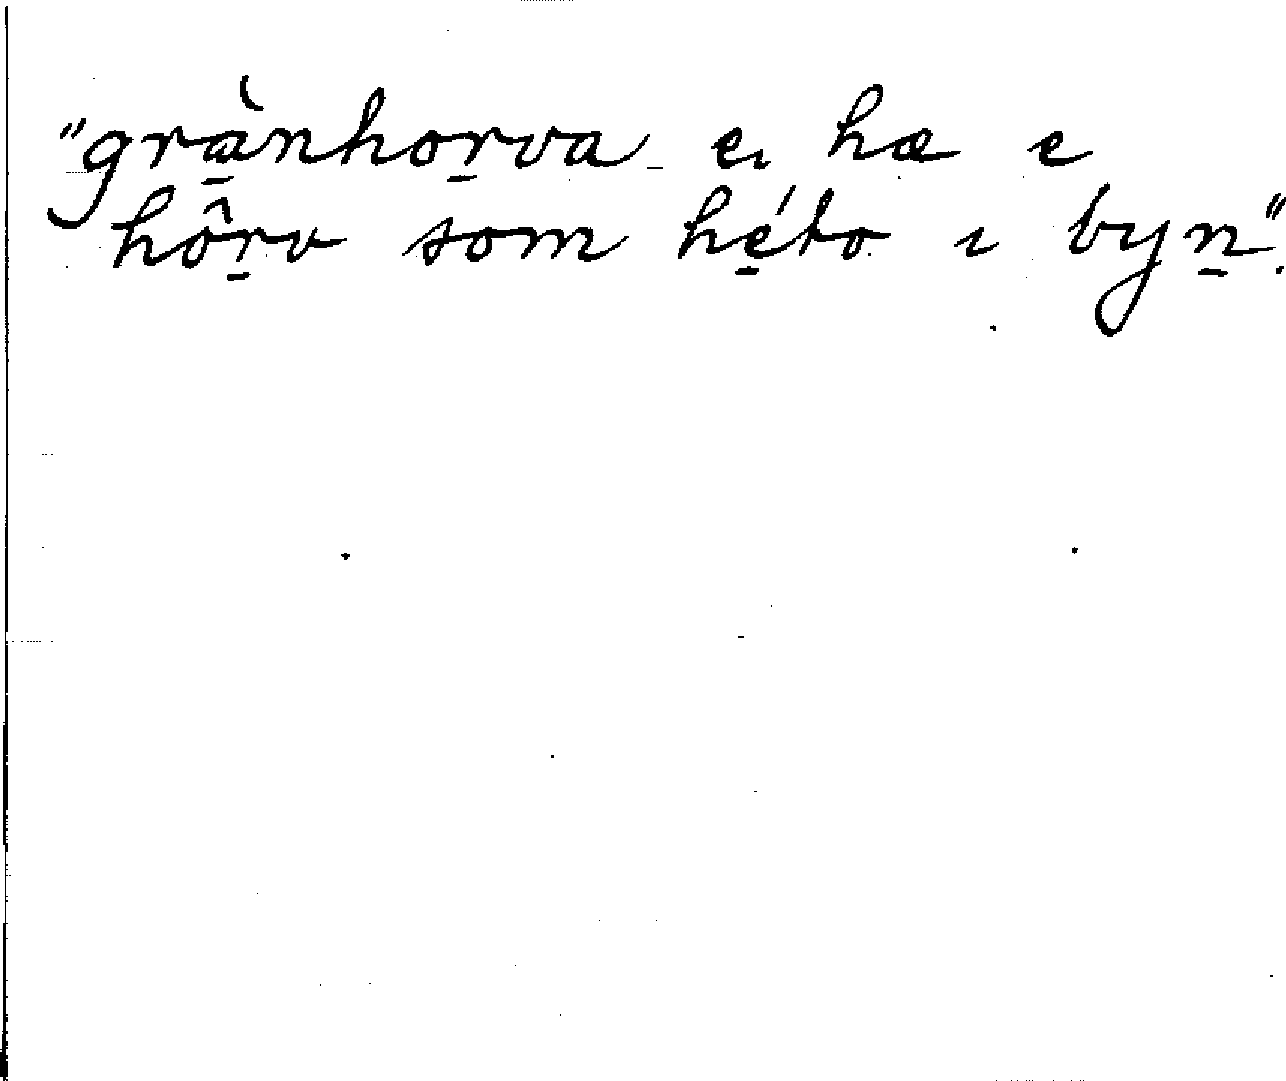 "græ̠̀nhor̠va e. hæ e
hôr̠v som hé̠to ı byn̠".